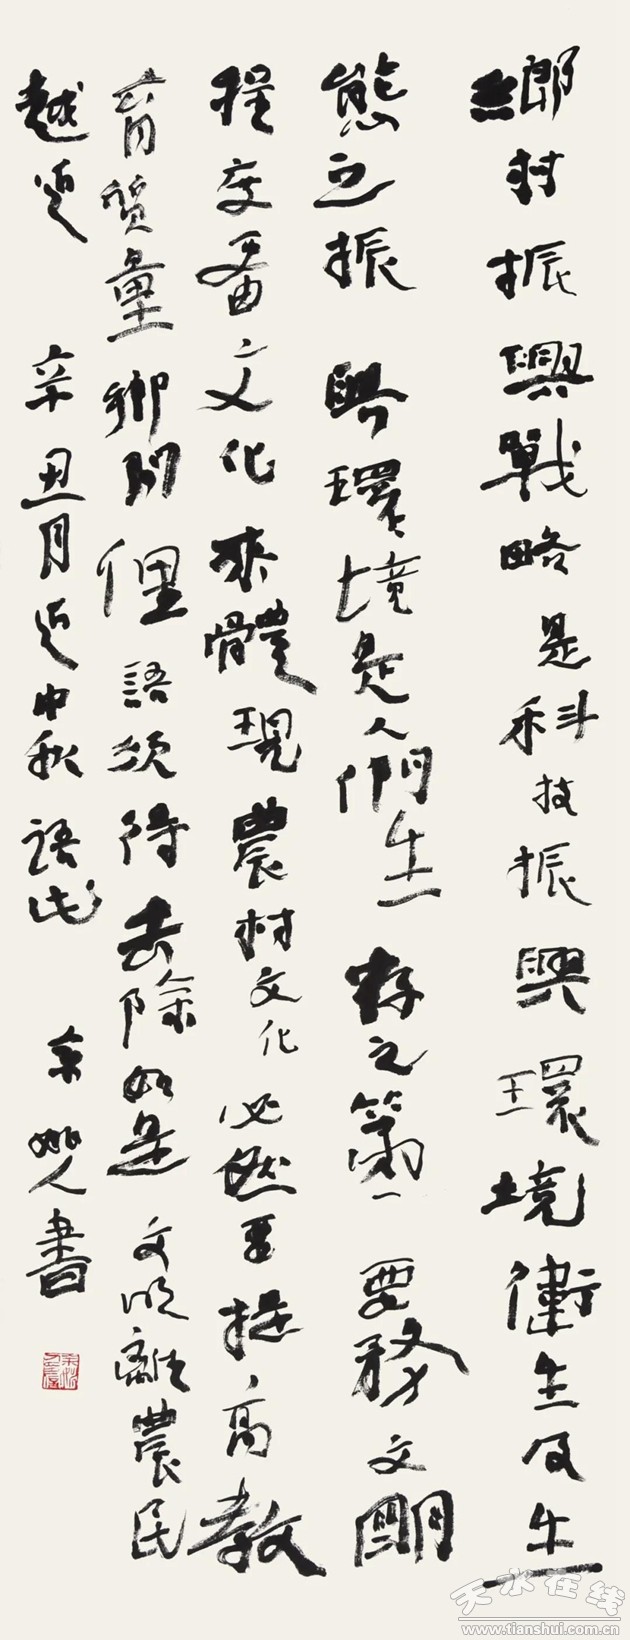 鄉村振興戰略是科技振興環境衛生及生
態之振興環境是人們生存之第一要務文明
程度看文化來體現農村文化必然要提高教
育質量鄉間俚語須待去除如是文明離農民
越近 辛丑月近中秋語也 書
天水在线
www.tianshui.com.cn